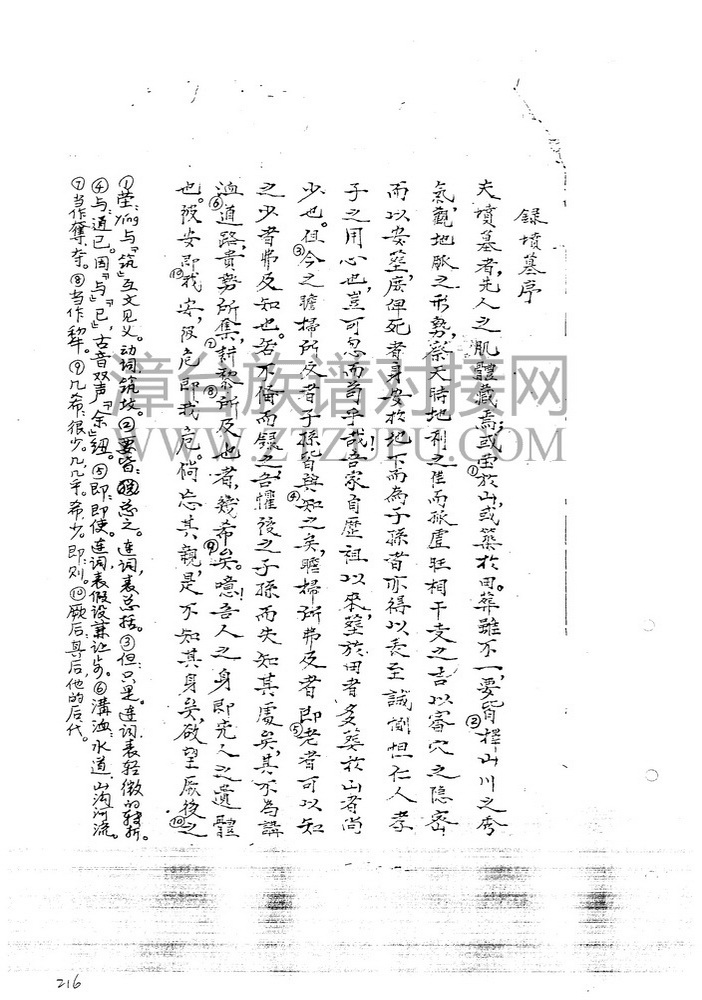 錄墳墓序
夫墳墓者,先人之肌體藏焉;或塋①於山,或築於田。葬雖不一,要皆②擇山川之秀
氣,觀地脈之形勢,察天時地利之佳而孤虛旺相干支之吉以審穴之隐密
而以安塋,庶俾死者身安於地下而為子孫者亦得以秉至誠惻怛仁人孝
子之用心也,豈可忽而苟乎哉!吾家自歷祖以來,塋於田者多,築於山者尚
少也。但③今之瞻掃所及者子孫皆與④知之矣,瞻掃所弗及者即⑤老者可以知
之少者弗及知也。若不俻而録之,吾懼後之子孫而失知其處矣,其不為溝
洫⑥道路,貴勢所集⑦,耕黎⑧所及也者,幾希⑨矣。噫!吾人之身即先人之遺體
也。彼安即我安,彼危即我危。倘忘其親,是不知其身矣,欲望厥後⑩之
①莹:Ying与“筑”互文见义。动词筑坟。②要皆:总之。连词,表总括。③但:只是。连词表轻微的转折。
④与:通已。因“与”“已”古音双声“余”纽。⑤即:即使。连词,表假设兼让步。⑥溝洫:水道,山沟河流。
⑦当作奪夺。⑧当作犂。⑨几希:很少。几几乎。希少。即:则。⑩厥后:其后,他的后代。
漳台族谱对接网
WWW.ZTZUPU.COM
216